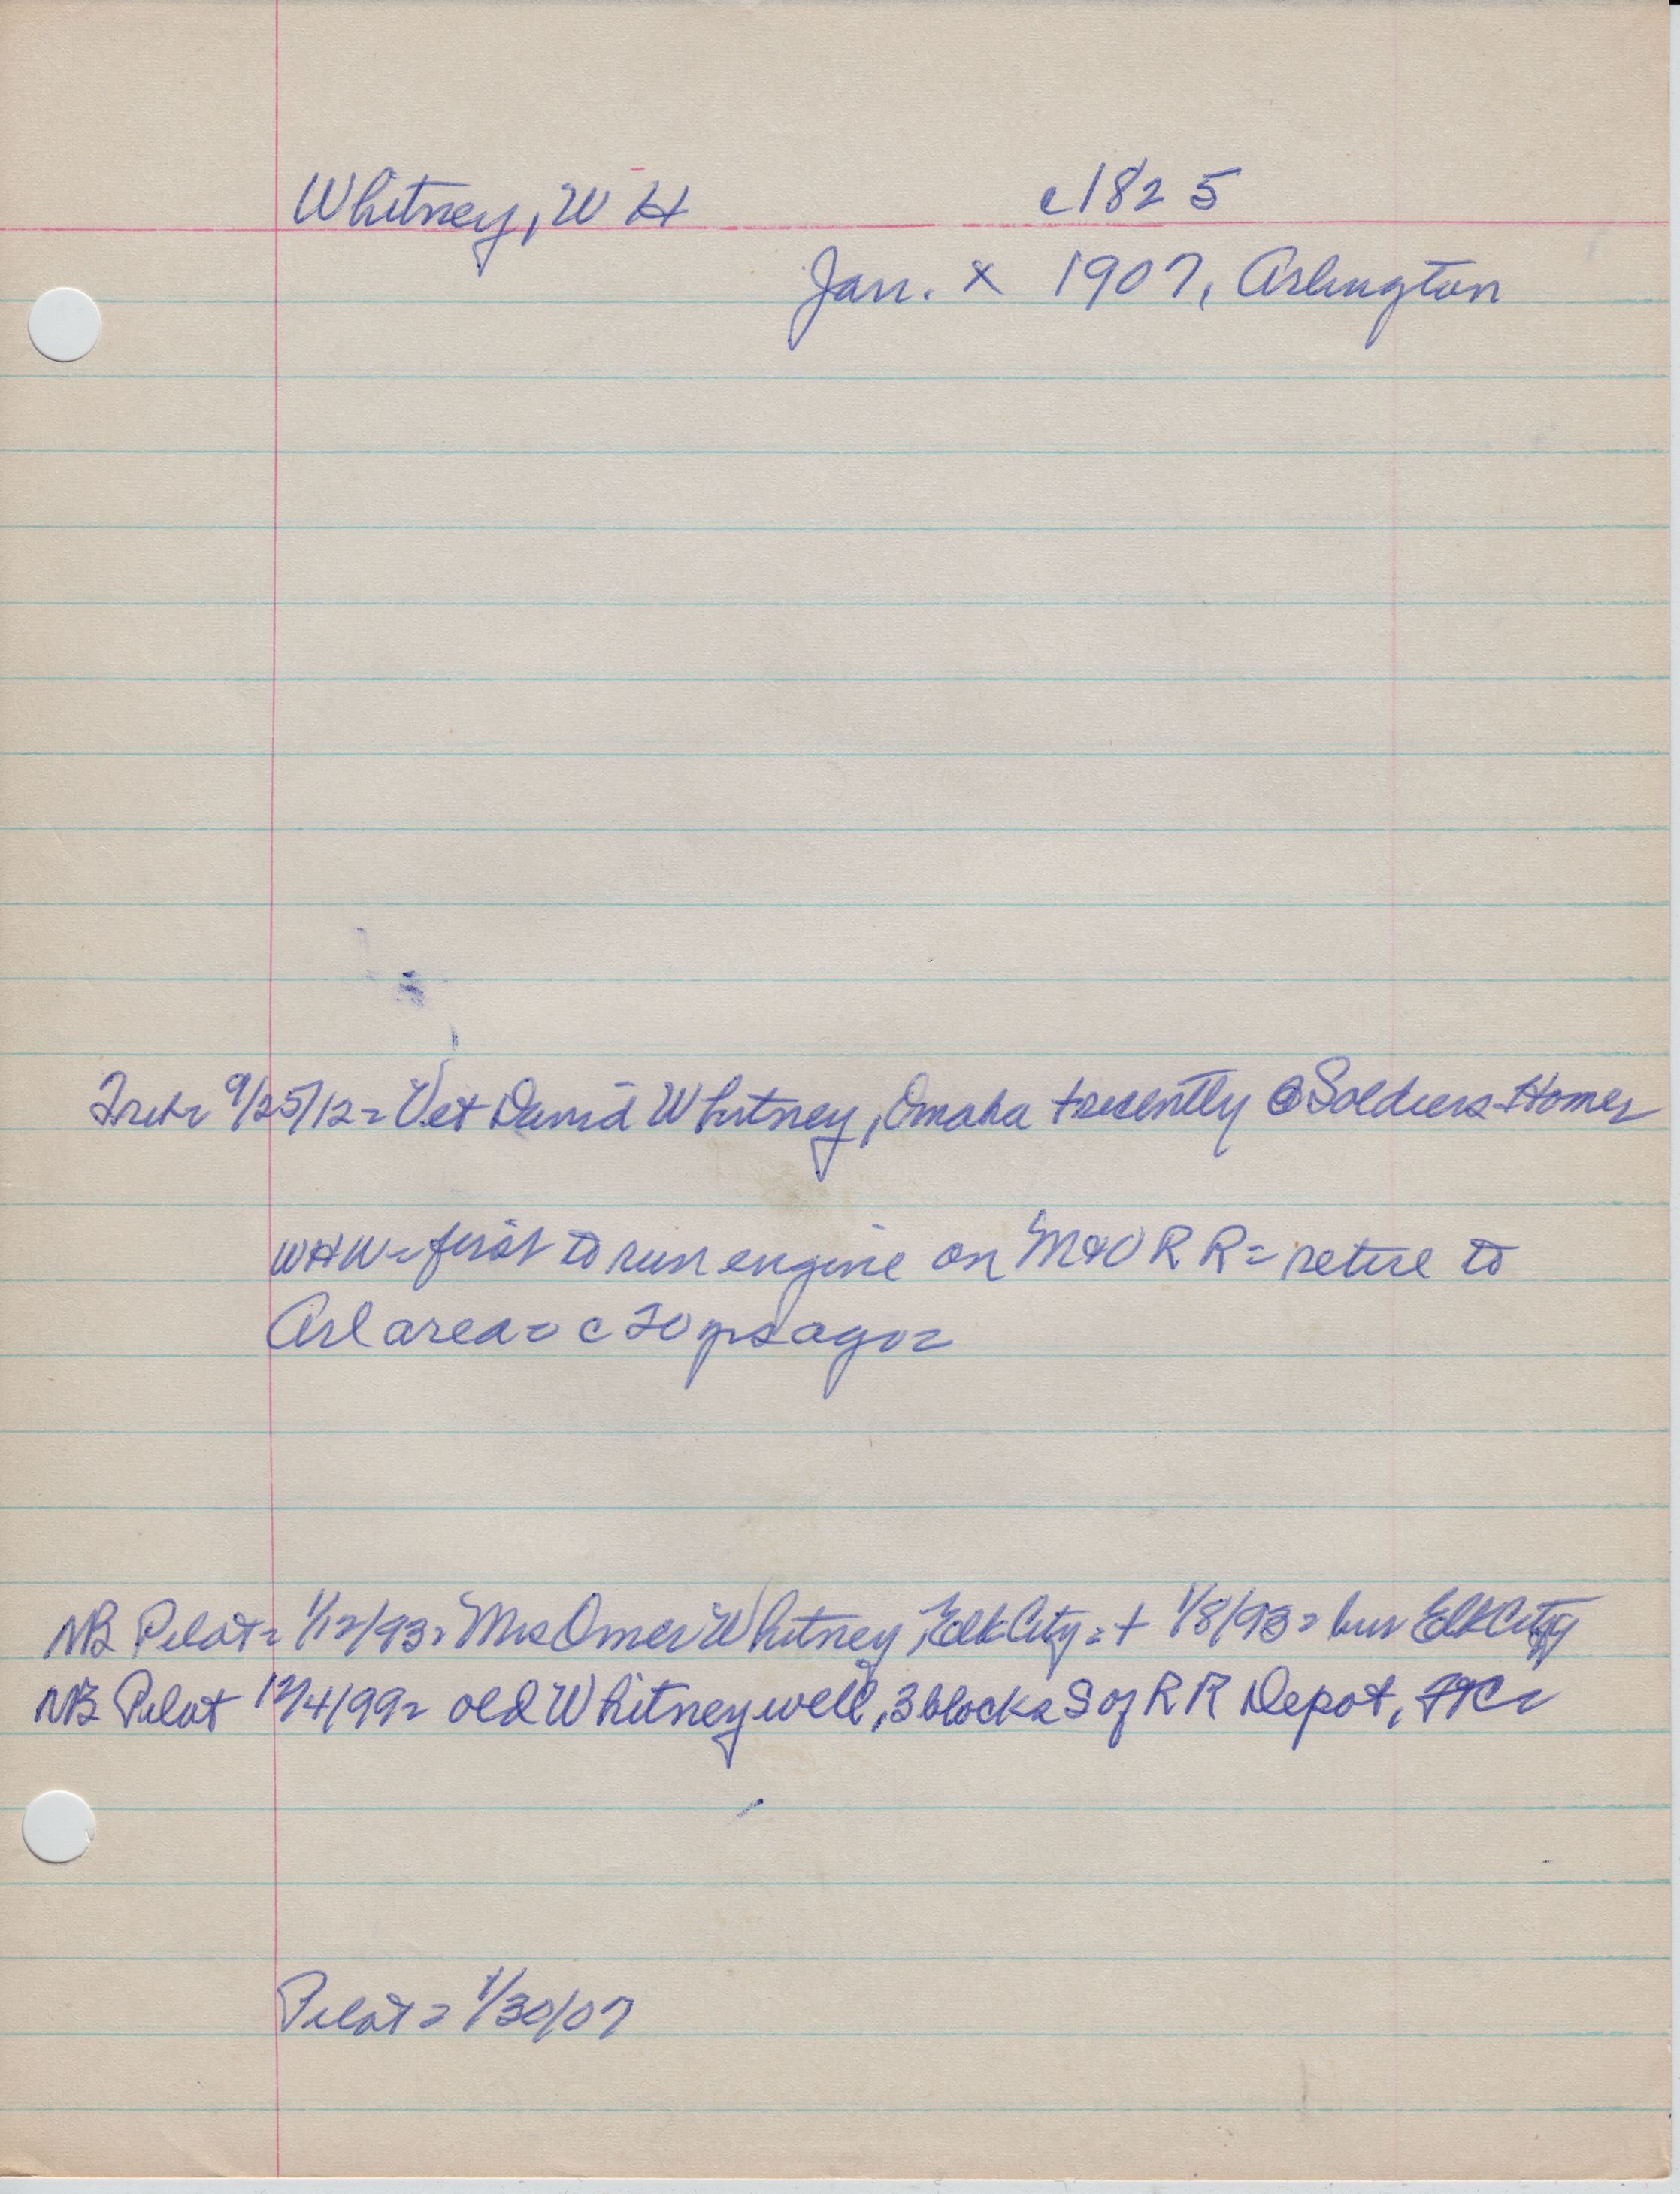 Whitney, W H c1825
Jan. x 1907, Arlington
Trib= 9/25/12= Vet David Whitney, Omaha + recently @ Soldiers Home=
WHW= first to run engine on M&O R R= retire to
Arl area= c 20 yrs ago=
NB Pilot= 1/12/93= Mrs Omer Whitney, Elk City= + 1/8/93= bur Elk City
NB Pilot 12/4/99= old Whitney well, 3 blocks S of RR Depot,
Pilot= 1/30/07